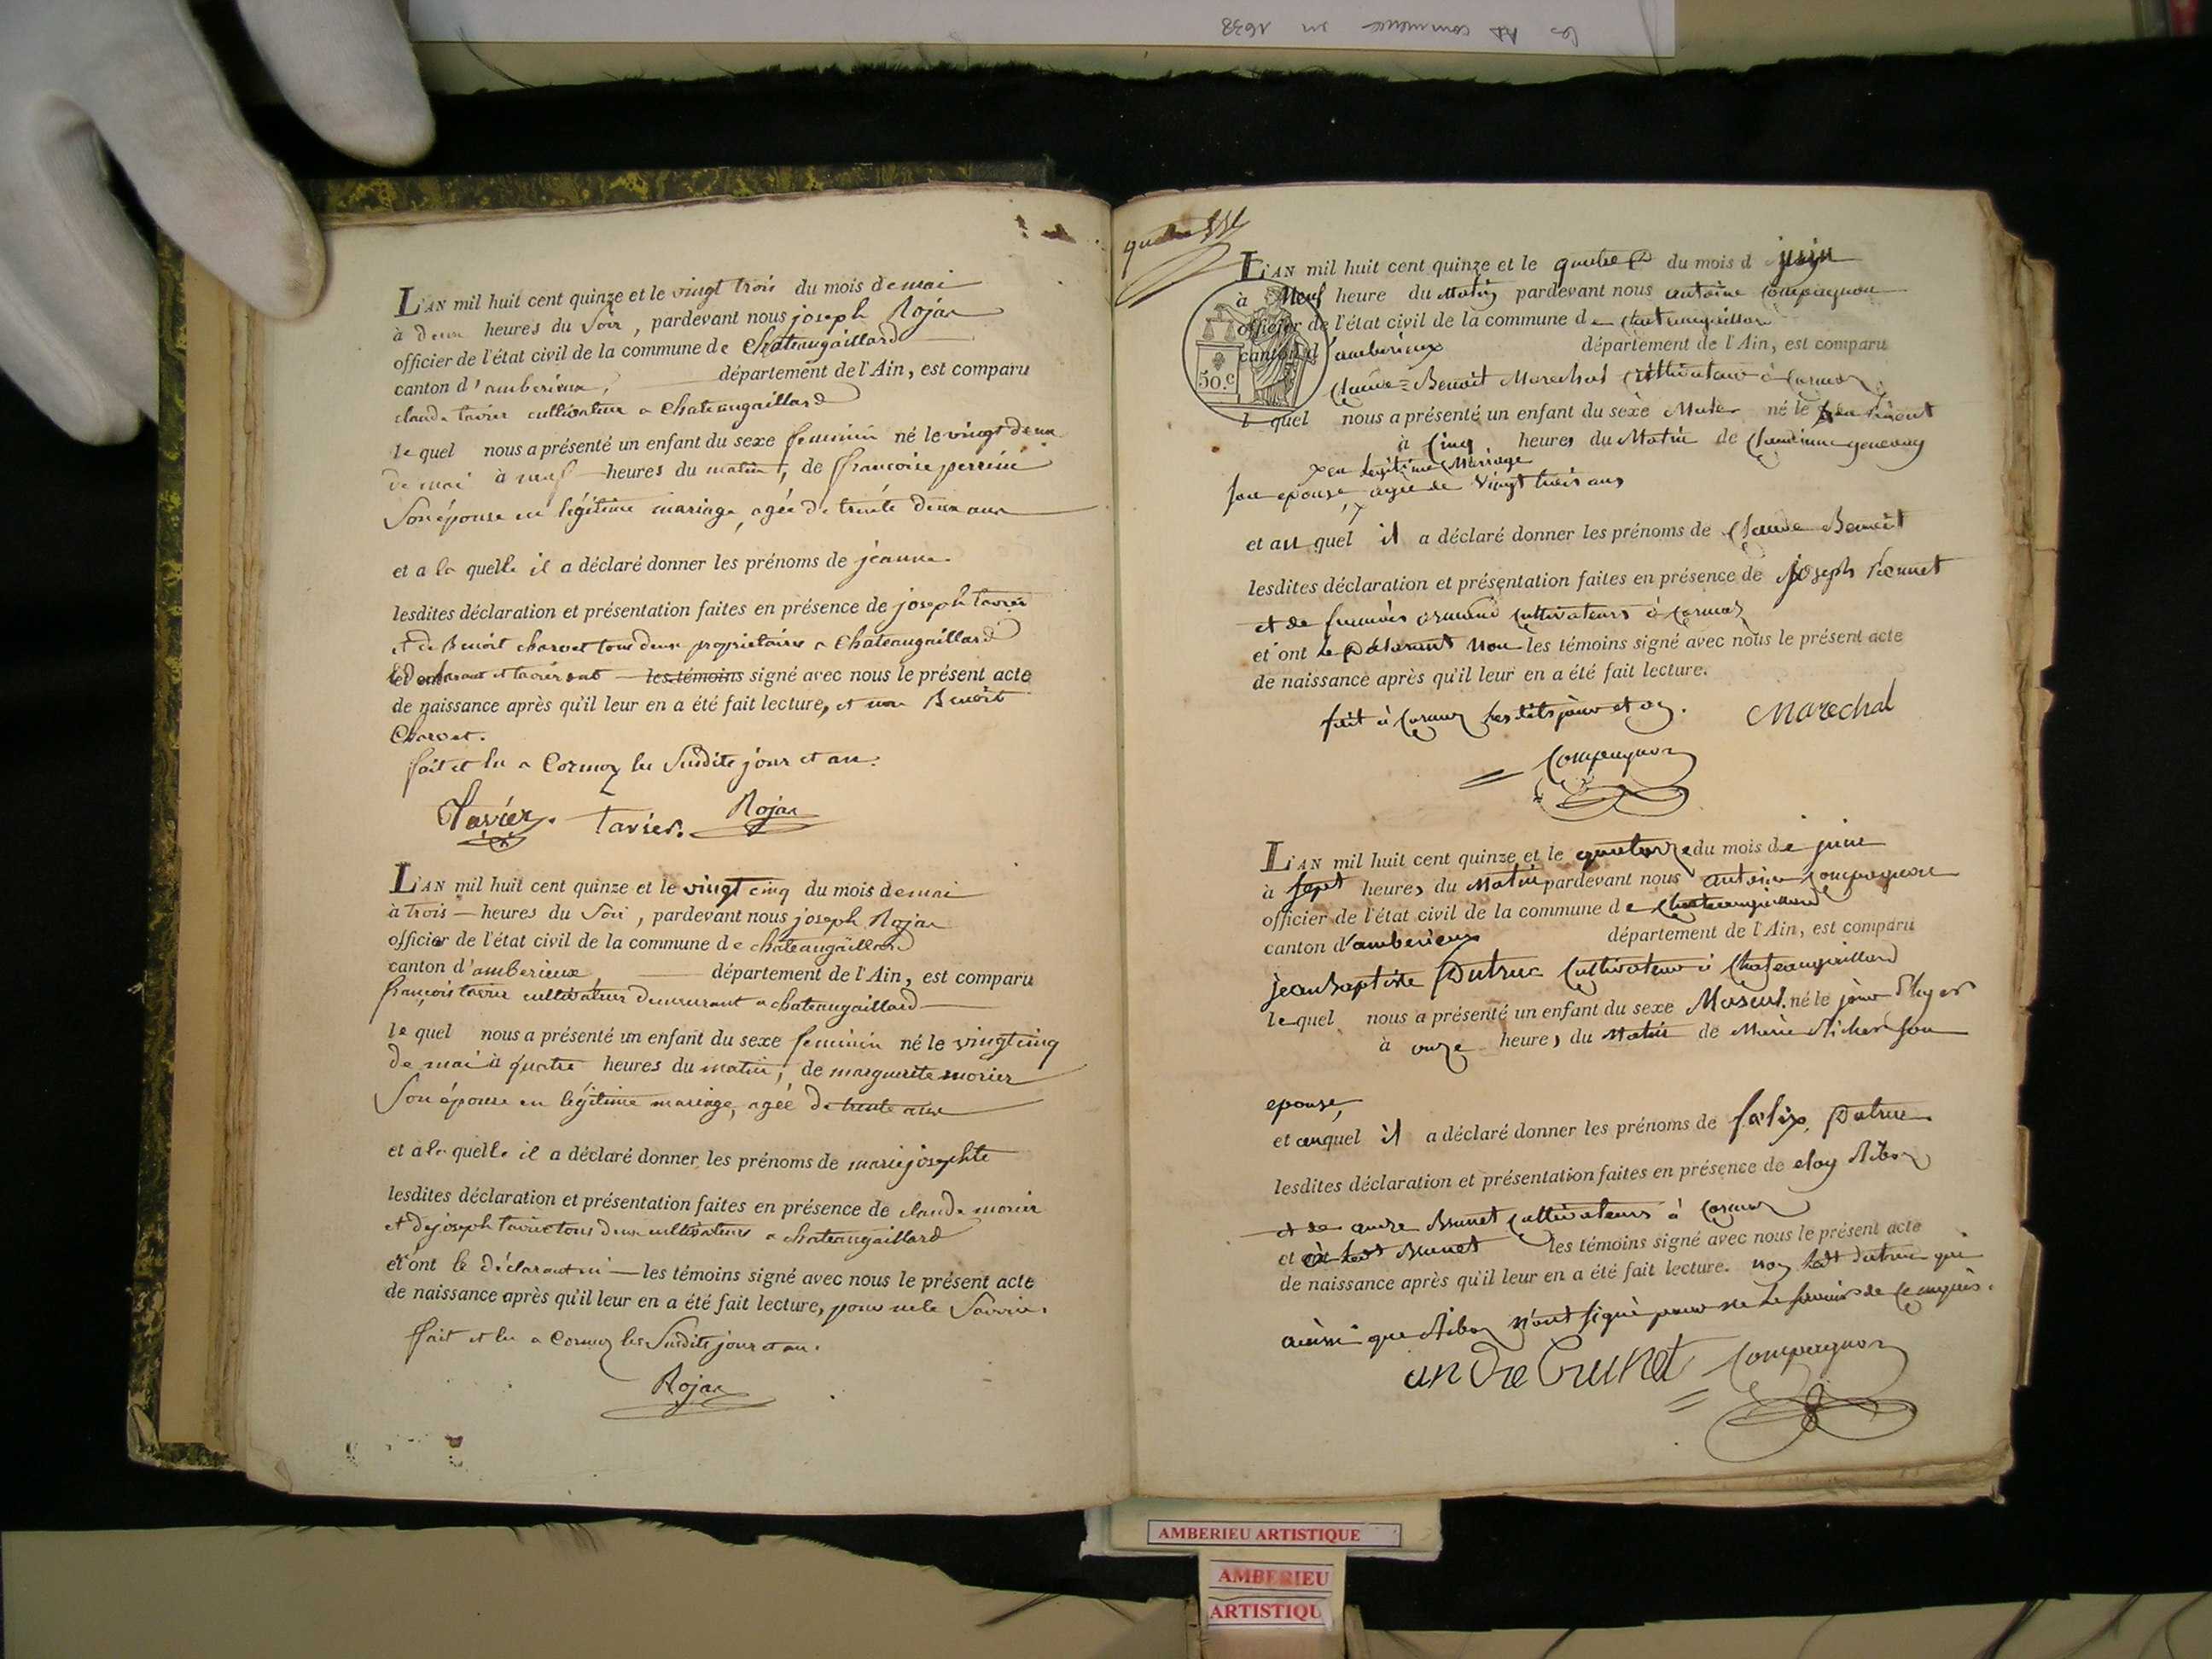 les AD commence en 1638
L'AN mil huit cent quinze et le vingt trois du mois de mai
à deux heures du Soir, pardevant nous joseph Rojar
officier de l'état civil de la commune de Chateaugaillard
canton d'amberieux, département de l'Ain, est comparu
claude tavier cultivateur a Chateaugaillard
le quel nous a présenté un enfant du sexe feminin né le vingt deux
de mai à neuf heures du matin, de francoise perrin
Son épouse en légitime mariage, agée de trente deux ans
et a la quelle il a déclaré donner les prénoms de jeanne
lesdites déclaration et présentation faites en présence de joseph tavier
et de Benoit charvet tous deux proprietaires a Chateaugaillard
le declarant et tavier ont les témoins signé avec nous le présent acte
de naissance après qu'il leur en a été fait lecture, et non Benoit
Charvet.
fait et lu a Cormoz les Susdits jour et an.
Tavier. tavier. Rojar
L'AN mil huit cent quinze et le vingt cinq du mois de mai
à trois heures du Soir, pardevant nous joseph Rojar
officier de l'état civil de la commune de chateaugaillard
canton d'amberieux, département de l'Ain, est comparu
françois tavier cultivateur demeurant a chateaugaillard
le quel nous a présenté un enfant du sexe feminin né le vingt cinq
de mai à quatre heures du matin, de marguerite morier
Son épouse en légitime mariage, agée de trente ans
et a la quelle il a déclaré donner les prénoms de marie josephte
lesdites déclaration et présentation faites en présence de claude morier
et de joseph tavier tous deux cultivateurs a chateaugaillard
et ont le déclarant ni les témoins signé avec nous le présent acte
de naissance après qu'il leur en a été fait lecture, pour ne le Savoir.
fait et lu a Cormoz les Susdits jour et an.
Rojar
L'AN mil huit cent quinze et le quatre du mois d juin
à Neuf heure du Matin pardevant nous antoine Compagnon
officier de l'état civil de la commune de chateaugaillard
canton d'amberieux département de l'Ain, est comparu
50.c
Claude=Benoit Marechal Cultivateur à Cormoz
l quel nous a présenté un enfant du sexe Male né le
à Cinq heures du Matin de Claudine
x en legitime Mariage
son epouse, agée de Vingt trois ans
et au quel il a déclaré donner les prénoms de Claude Benoit
lesdites déclaration et présentation faites en présence de Joseph
et de francois Cultivateurs à Cormoz
et ont le déclarant Non les témoins signé avec nous le présent acte
de naissance après qu'il leur en a été fait lecture.
fait à Cormoz les dits jour et an. Marechal
Compagnon
L'AN mil huit cent quinze et le quatorze du mois de juin
à Sept heures du Matin pardevant nous antoine Compagnon
officier de l'état civil de la commune de Chateaugaillard
canton d'amberieux département de l'Ain, est comparu
jean Baptiste Dutruc Cultivateur à Chateaugaillard
le quel nous a présenté un enfant du sexe Mascul. né le jour d'hyer
à onze heures du Matin de Marie Son
epouse,
et auquel il a déclaré donner les prénoms de felix, Dutruc
lesdites déclaration et présentation faites en présence de eloy Ribon
et de andre Brunet Cultivateurs à Cormoz
et ledt Brunet les témoins signé avec nous le présent acte
de naissance après qu'il leur en a été fait lecture. non ledt dutruc qui
ainsi que Ribon n'ont signé pour ne le savoir de ce enquis.
andre brunet Compagnon
AMBERIEU ARTISTIQUE
AMBERIEU
ARTISTIQU